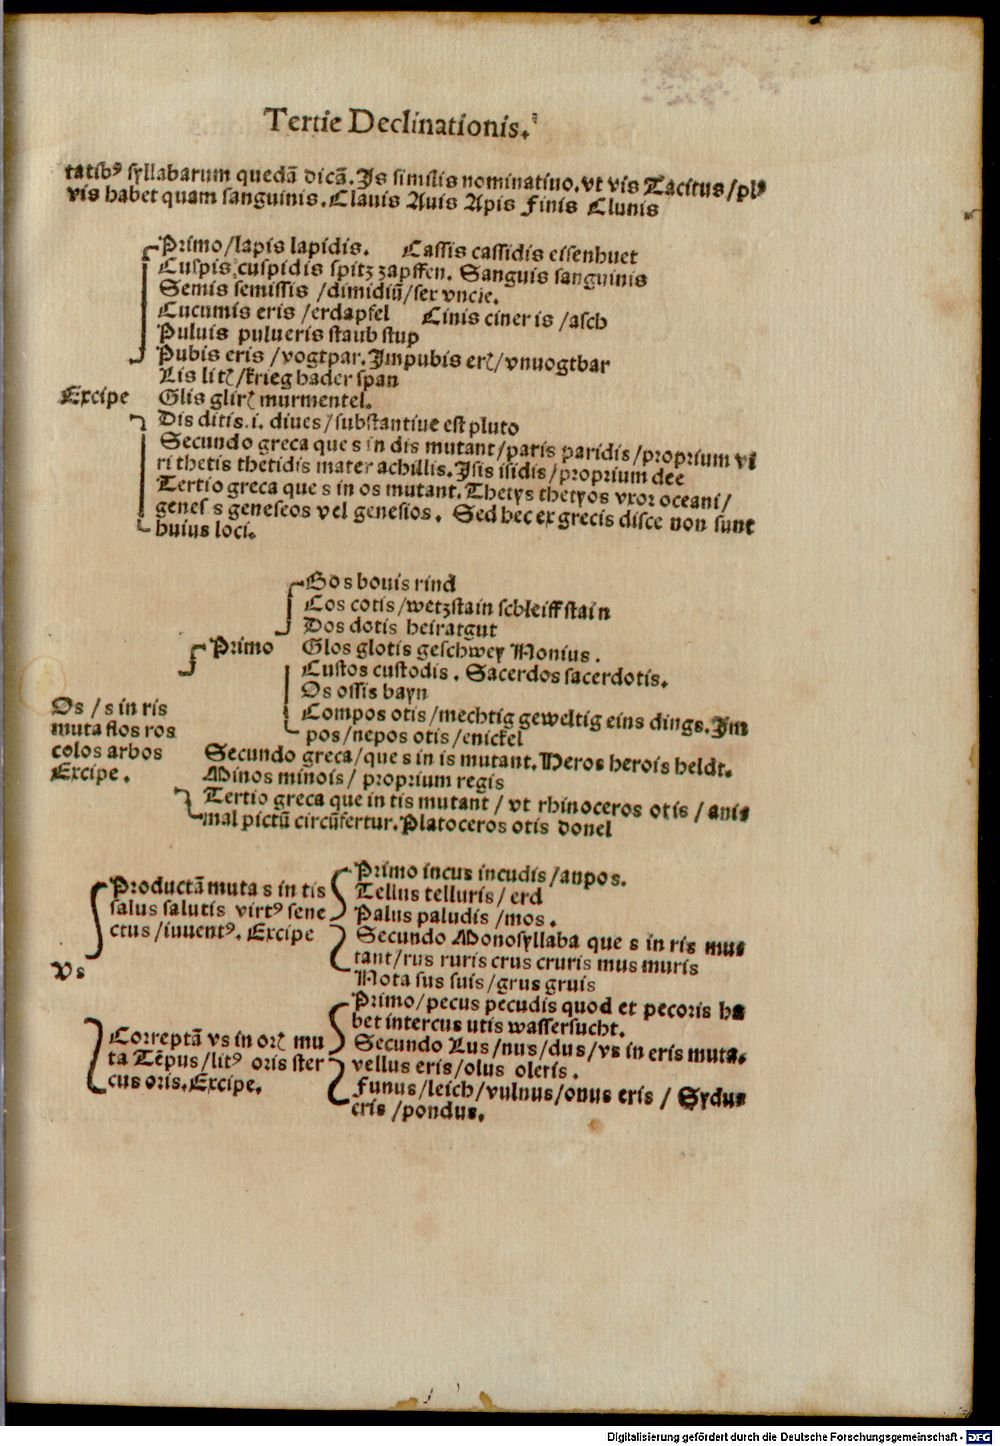 Tertie Declinationis.
tatibꝰ syllabarum quedã dicã. Is similis nominatiuo. vt vis Tacitus / plꝰ
vis habet quam sanguinis. Clauis Auis Apis Finis Clunis
Primo / lapis lapidis. Cassis cassidis eisenhuet
Cuspis cuspidis spitz zapffen. Sanguis sanguinis
Semis semissis / dimidiũ / sex vncie.
Cucumis eris / erdapfel Cinis cineris / asch
Puluis pulueris staub stup
Pubis eris / vogtpar. Impubis erꝭ / vnuogtbar
Lis litꝭ / krieg hader span
Excipe Glis glirꝭ murmentel.
Dis ditis .i. diues / substantiue est pluto
Secundo greca que s in dis mutant / paris paridis / proprium vi
ri thetis thetidis mater achillis. Isis isidis / proprium dee
Tertio greca que s in os mutant. Thetys thetyos vxor oceani /
genes s geneseos vel genesios. Sed hec ex grecis disce non sunt
huius loci.
Bos bouis rind
Cos cotis / wetzstain schleiff stain
Dos dotis heiratgut
Primo Glos glotis geschwey Nonius.
Custos custodis. Sacerdos sacerdotis.
Os ossis bayn
Compos otis / mechtig geweltig eins dings. Im
pos / nepos otis / enickel
Os / s in ris
muta flos ros
colos arbos
Excipe.
Secundo greca / que s in is mutant. Heros herois heldt.
Minos minois / proprium regis
Tertio greca que in tis mutant / vt rhinoceros otis / anis
mal pictũ circũfertur. Platoceros otis donel
Productã muta s in tis
salus salutis virtꝰ sene
ctus / iuuentꝰ. Excipe
Primo incus incudis / anpos.
Tellus telluris / erd
Palus paludis / mos.
Secundo Monosyllaba que s in ris mus
tant / rus ruris crus cruris mus muris
Nota sus suis / grus gruis
Vs
Correptã vs in orꝭ mu
ta Tẽpus / litꝰ oris ster
cus oris. Excipe.
Primo / pecus pecudis quod et pecoris ha
bet intercus utis wassersucht.
Secundo Lus / nus / dus / vs in eris muta.
vellus eris / olus oleris.
Funus / leich / vulnus / onus eris / Sydus
eris / pondus.
Digitalisierung gefördert durch die Deutsche Forschungsgemeinschaft - DFG